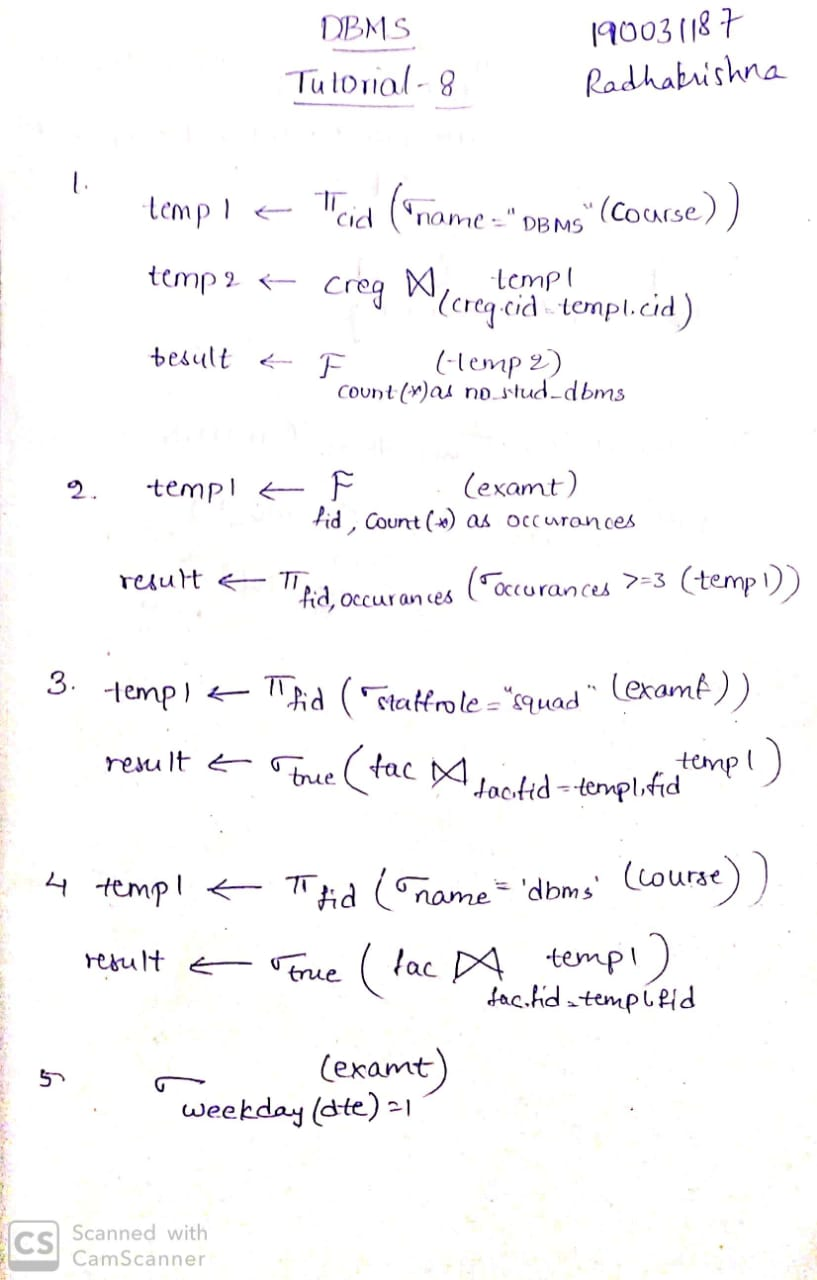 DBMS
190031187
Tutorial-8
Radhakrishna
1.
temp1 ← π cid (σ name="DBMS" (Course))
temp2 ← creg ⋈ (creg.cid=temp1.cid) temp1
result ← F count(*)as no_stud_dbms (temp2)
2. temp1 ← F fid, Count(*) as occurances (examt)
result ← π fid, occurances (σ occurances >=3 (temp1))
3. temp1 ← π fid (σ staffrole="squad" (examt))
result ← σ true (fac ⋈ fac.fid=temp1.fid temp1)
4 temp1 ← π fid (σ name='dbms' (course))
result ← σ true (fac ⋈ fac.fid=temp1.fid temp1)
5 σ weekday(dte)=1 (examt)
CS Scanned with
CamScanner